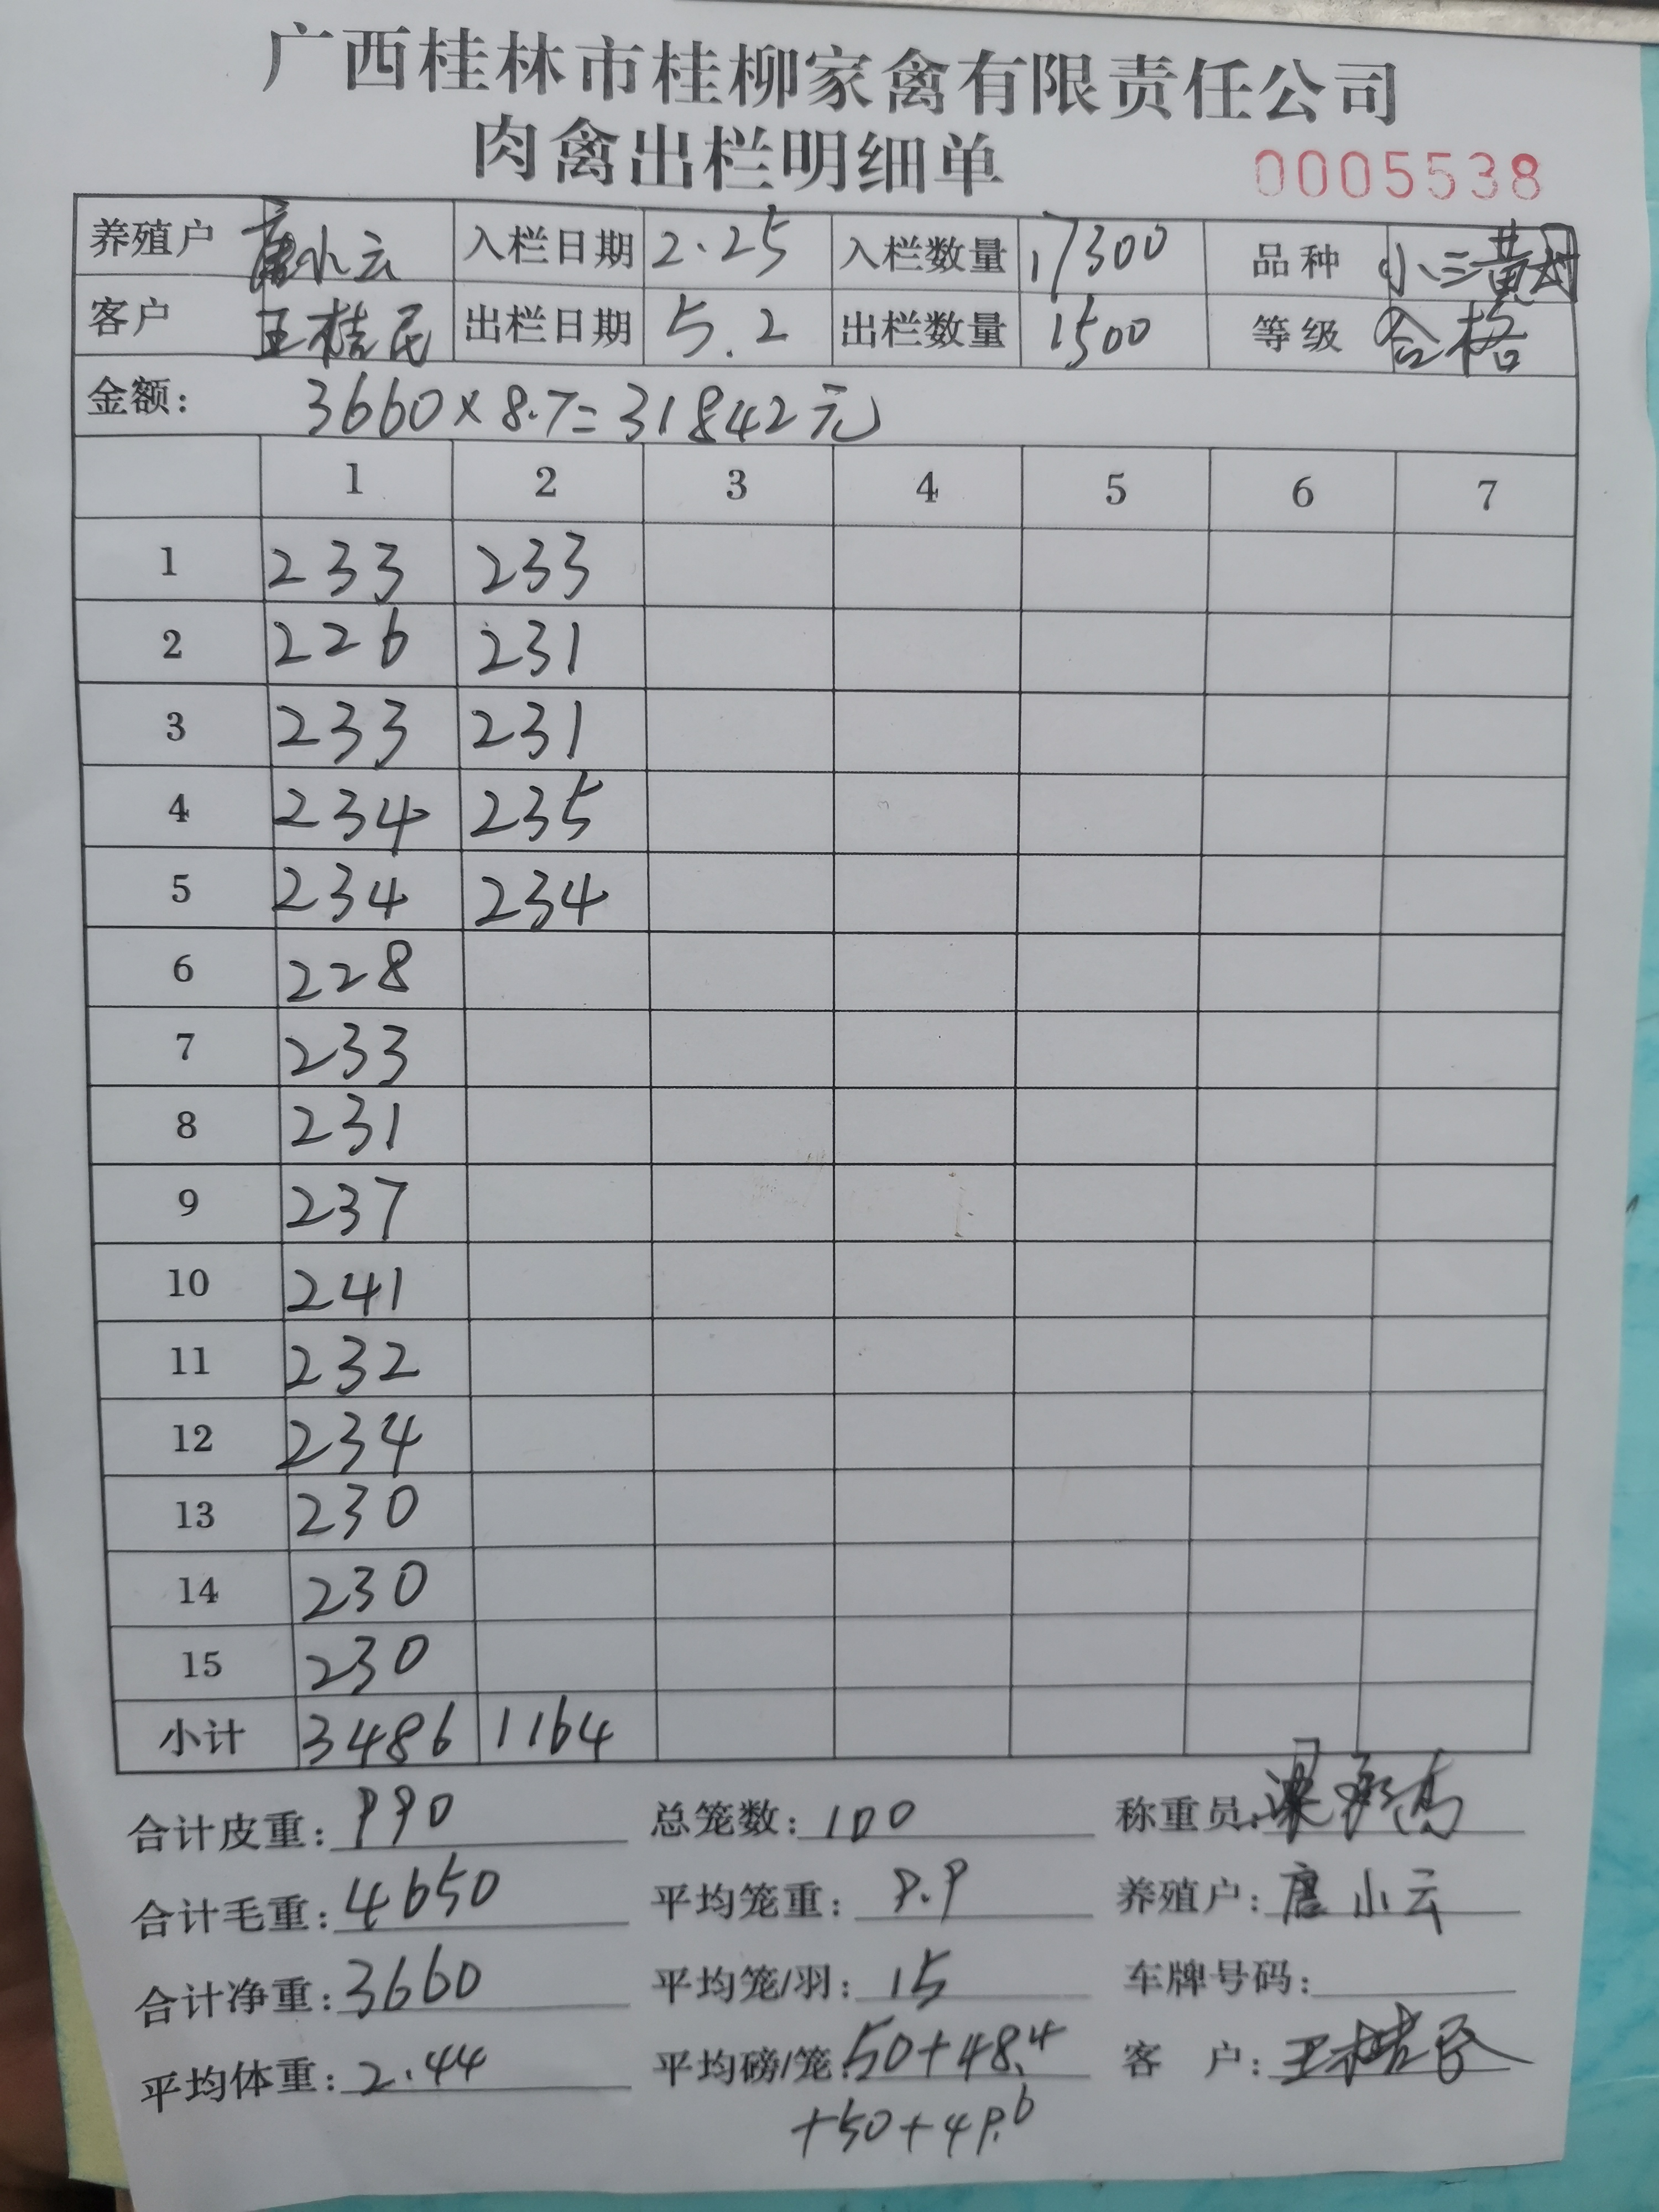 广西桂林市桂柳家禽有限责任公司
肉禽出栏明细单 0005538
养殖户 唐小云 入栏日期 2.25 入栏数量 17300 品种 小三黄
客户 王桂民 出栏日期 5.2 出栏数量 1500 等级 合格
金额: 3660×8.7=31842元
1 2 3 4 5 6 7
1 233 233
2 226 231
3 233 231
4 234 235
5 234 234
6 228
7 233
8 231
9 237
10 241
11 232
12 234
13 230
14 230
15 230
小计 3486 1164
合计皮重: 990 总笼数: 100 称重员:
合计毛重: 4650 平均笼重: 9.9 养殖户: 唐小云
合计净重: 3660 平均笼/羽: 15 车牌号码:
平均体重: 2.44 平均磅/笼: 50+48.4 客 户: 王桂民
+50+49.6